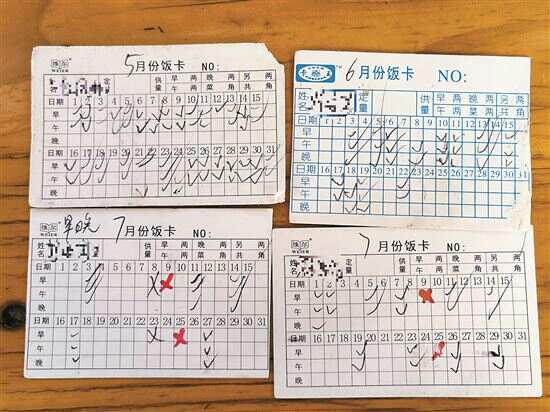 维尔
WEIER
5月份饭卡 NO:
姓 定 供 早 两 晚 两 另 两
名 量 量 午 两 菜 角 共 角
日期 1 2 3 4 5 6 7 8 9 10 11 12 13 14 15
早
午
晚
日期 16 17 18 19 20 21 22 23 24 25 26 27 28 29 30 31
早
午
晚
6月份饭卡 NO:
姓 定 供 早 两 晚 两 另 两
名 量 量 午 两 菜 角 共 角
日期 1 2 3 4 5 6 7 8 9 10 11 12 13 14 15
早
午
晚
日期 16 17 18 19 20 21 22 23 24 25 26 27 28 29 30 31
早
午
晚
维尔
WEIER
早晚 7月份饭卡 NO:
姓 定 供 早 两 晚 两 另 两
名 量 量 午 两 菜 角 共 角
日期 1 2 3 4 5 6 7 8 9 10 11 12 13 14 15
早
午
晚
日期 16 17 18 19 20 21 22 23 24 25 26 27 28 29 30 31
早
午
晚
维尔
WEIER
7月份饭卡 NO:
姓 定 供 早 两 晚 两 另 两
名 量 量 午 两 菜 角 共 角
日期 1 2 3 4 5 6 7 8 9 10 11 12 13 14 15
早
午
晚
日期 16 17 18 19 20 21 22 23 24 25 26 27 28 29 30 31
早
午
晚